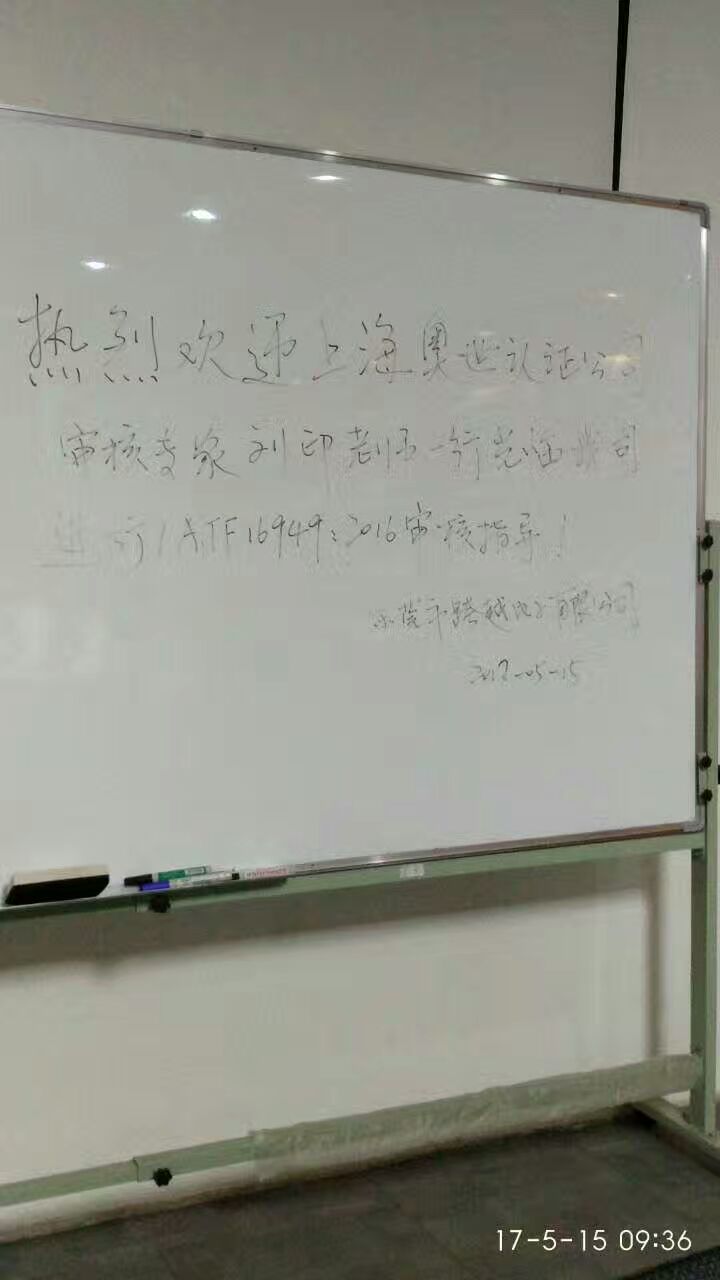 热烈欢迎上海奥世认证公司
审核专家刘印老师一行光临我司
进行IATF16949:2016审核指导!
东莞市跨越电子有限公司
2017-05-15
17-5-15 09:36